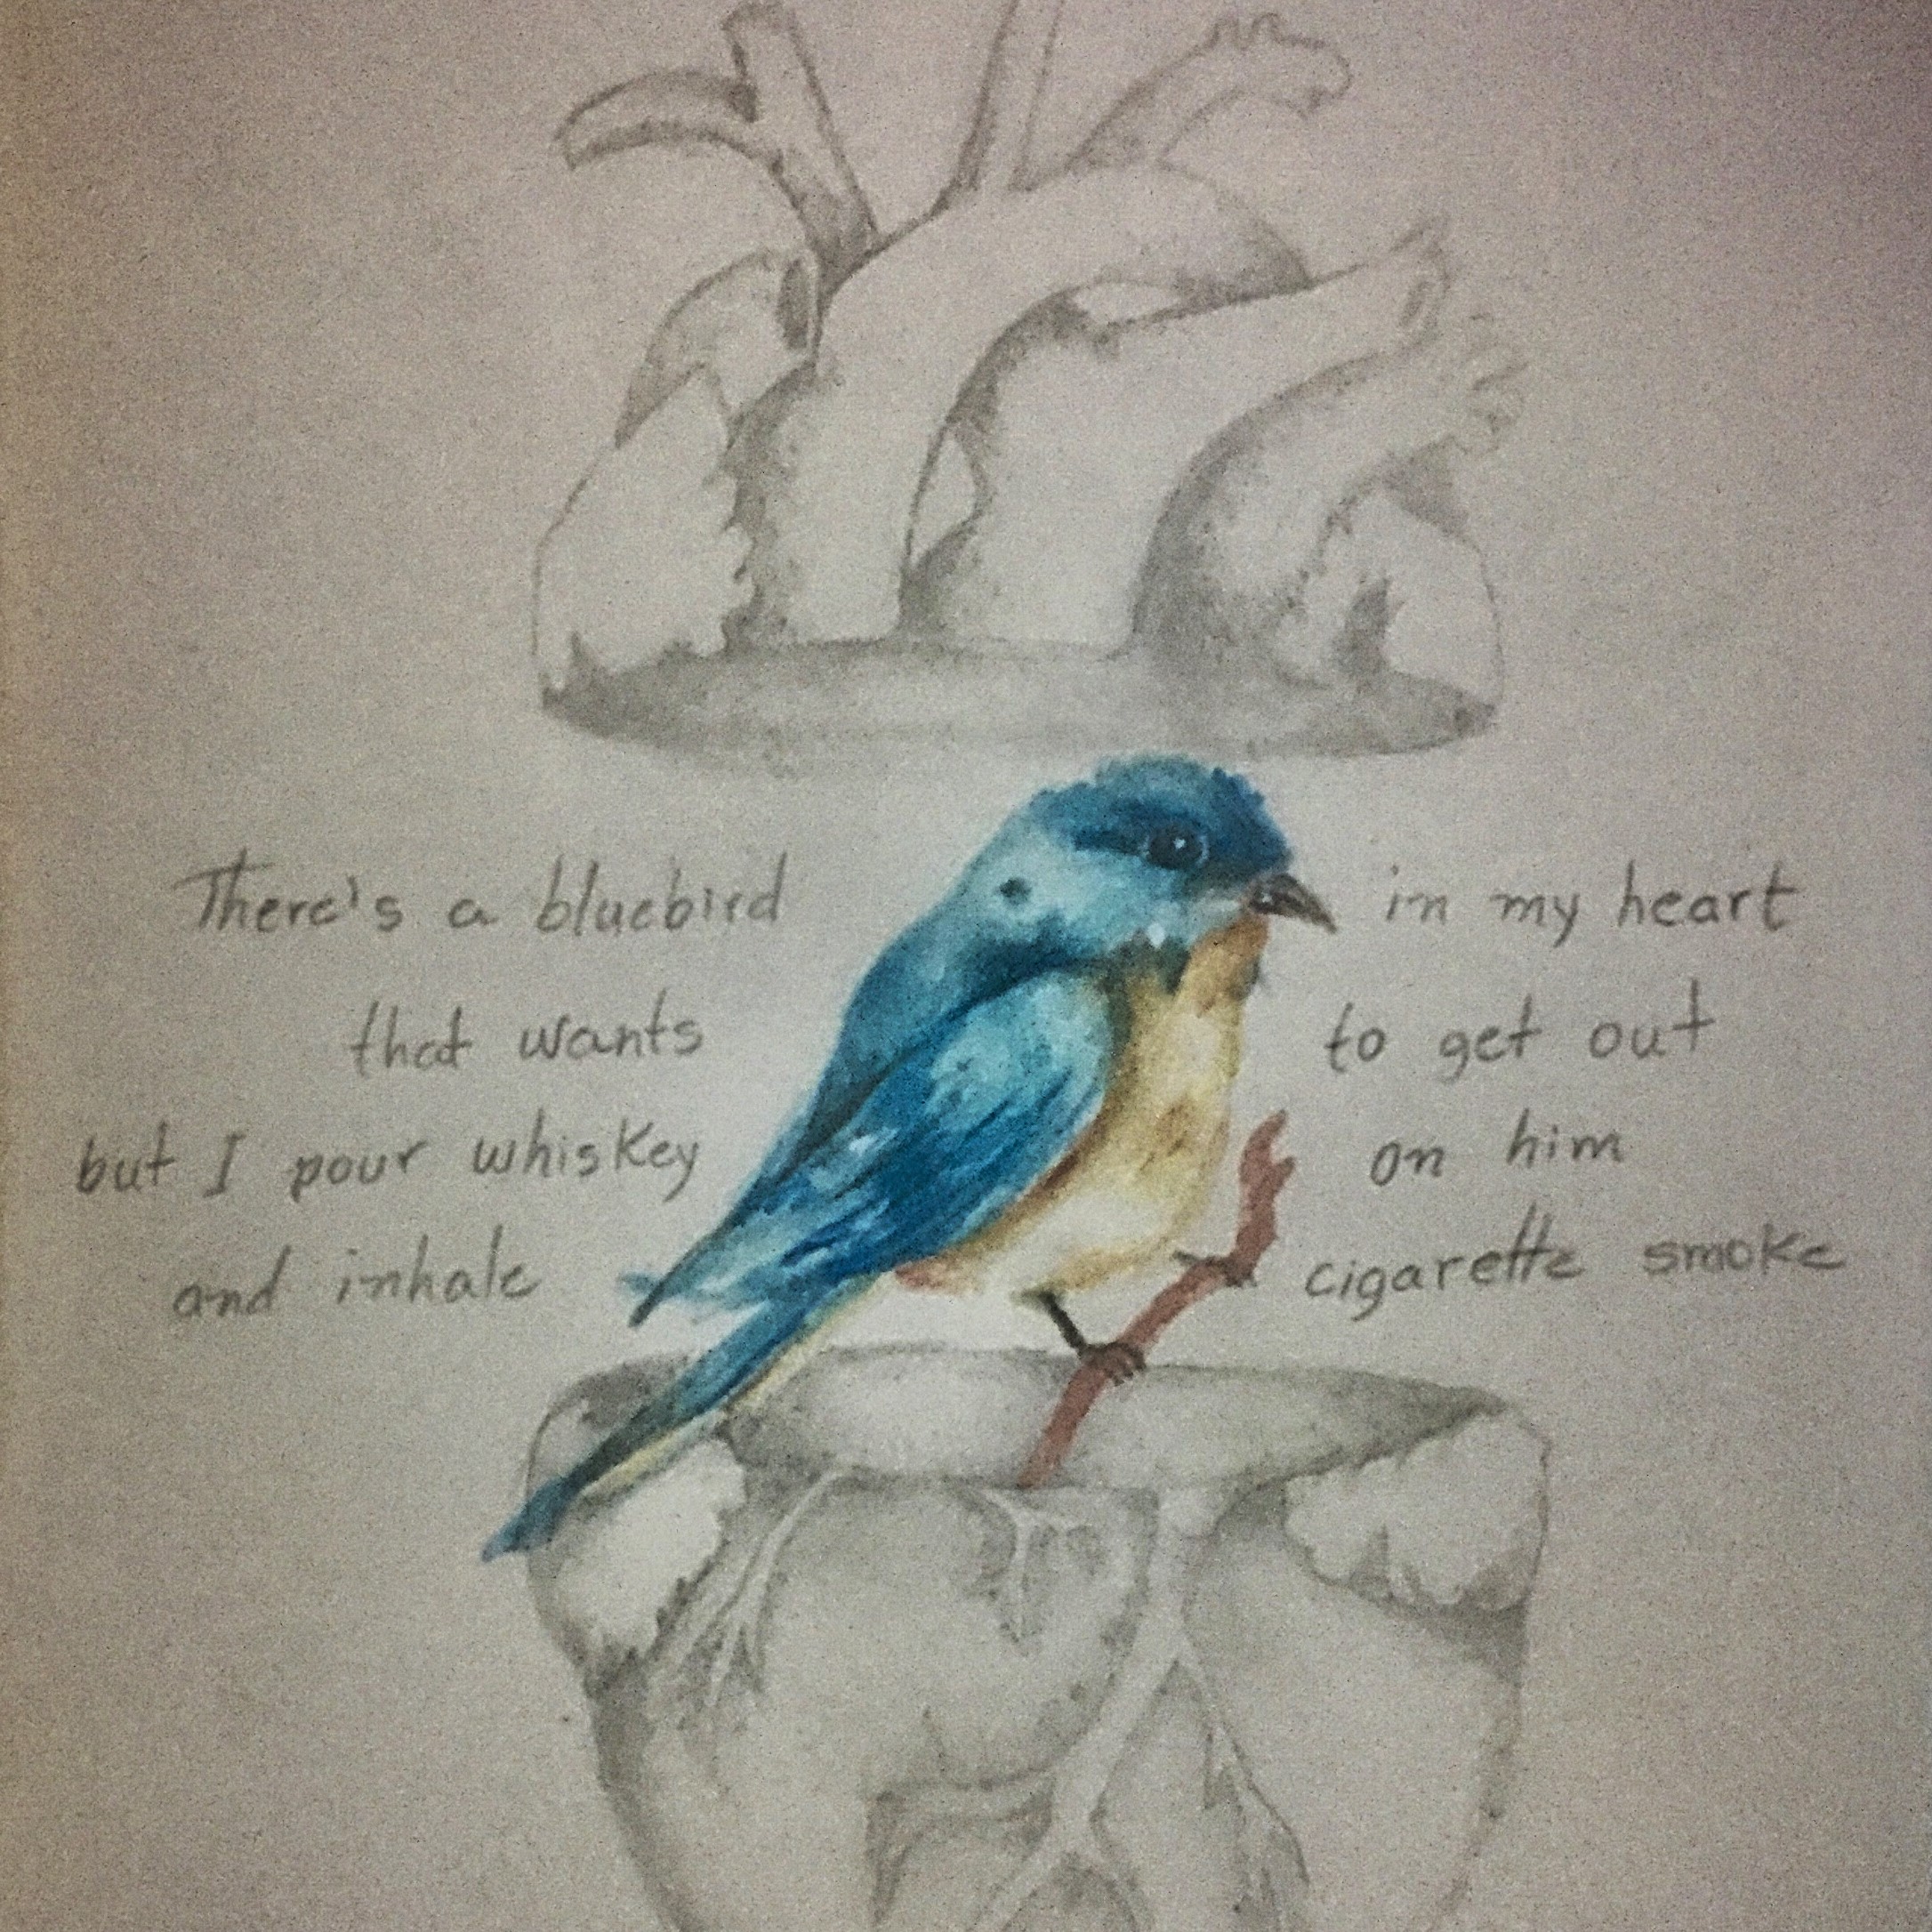 There's a bluebird in my heart
that wants to get out
but I pour whiskey on him
and inhale cigarette smoke